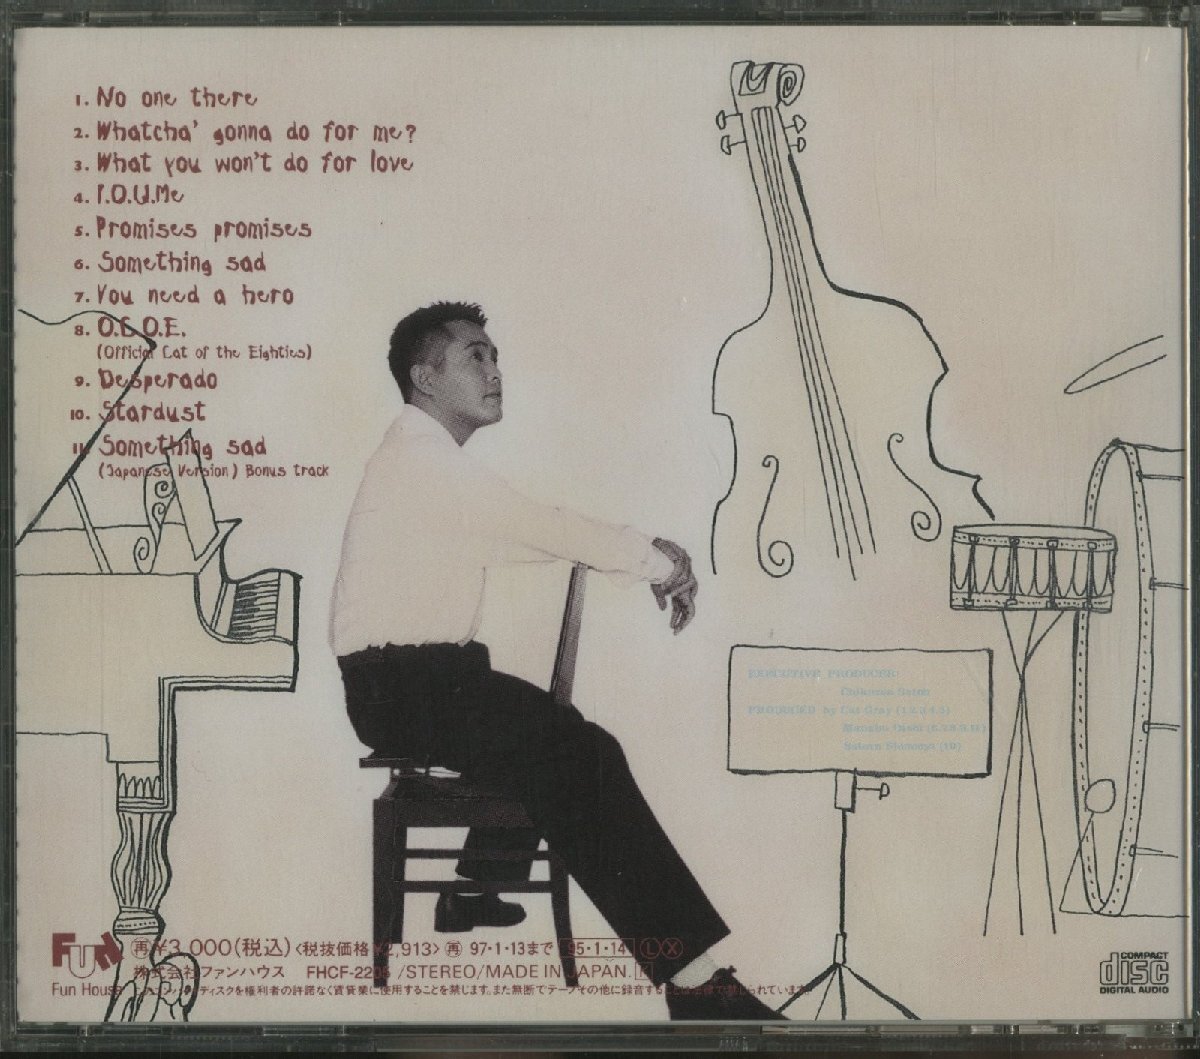 1. No one there
2. Whatcha' gonna do for me?
3. What you won't do for love
4. I.O.U.Me
5. Promises promises
6. Something sad
7. You need a hero
8. O.C.O.E.
(Official Cat of the Eighties)
9. Desperado
10. Stardust
11. Something sad
(Japanese Version) Bonus track
EXECUTIVE PRODUCER:
Chikanori Satoh
PRODUCED by Cat Gray
FUN
Fun House
再¥3,000(税込)〈税抜価格¥2,913〉再 97・1・13まで 95・1・14 L X
株式会社ファンハウス FHCF-2205 /STEREO/MADE IN JAPAN.
ディスクを権利者の許諾なく賃貸業に使用することを禁じます。また無断でテープその他に録音することは法律で禁じられています。
COMPACT
disc
DIGITAL AUDIO